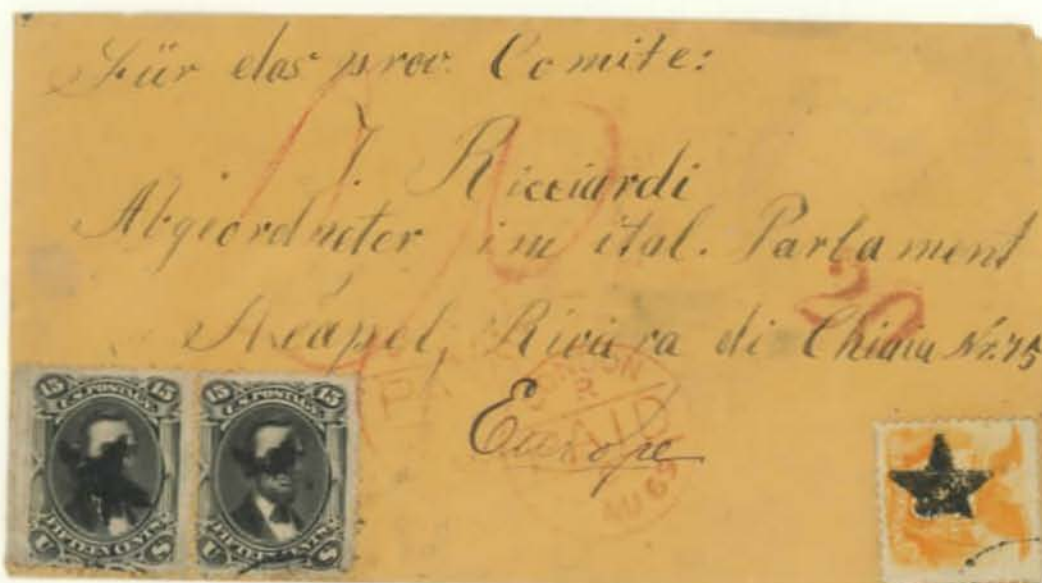 Für das prov. Comite:
J. Ricciardi
Abgeordneter im ital. Parlament
20
Neapel, Riviera di Chiaia Nr. 75
Europe
LONDON
PAID
69
15 15
U.S. POSTAGE
FIFTEEN CENTS
U S
15 15
U.S. POSTAGE
FIFTEEN CENTS
U S